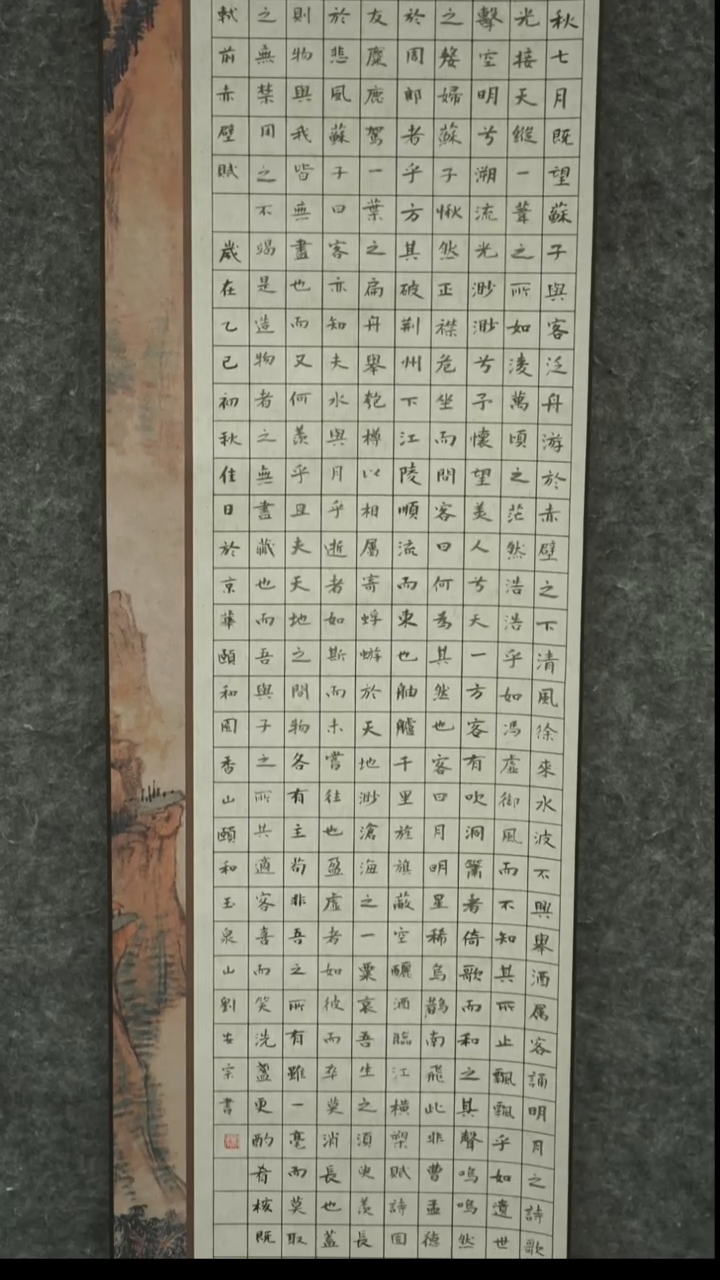 秋七月既望蘇子與客泛舟游於赤壁之下清風徐來水波不興舉酒属客誦明月之詩歌
光接天縱一葦之所如淩萬頃之茫然浩浩乎如馮虛御風而不知其所止飄飄乎如遺世
擊空明兮溯流光渺渺兮予懷望美人兮天一方客有吹洞簫者倚歌而和之其聲嗚嗚然
之嫠婦蘇子愀然正襟危坐而問客曰何為其然也客曰月明星稀烏鵲南飛此非曹孟德
於周郎者乎方其破荆州下江陵順流而東也舳艫千里旌旗蔽空釃酒臨江橫槊賦詩固
友麋鹿駕一葉之扁舟舉匏樽以相属寄蜉蝣於天地渺滄海之一粟哀吾生之須臾羨長
於悲風蘇子曰客亦知夫水與月乎逝者如斯而未嘗往也盈虛者如彼而卒莫消長也蓋
則物與我皆無盡也而又何羨乎且夫天地之間物各有主苟非吾之所有雖一毫而莫取
之無禁用之不竭是造物者之無盡藏也而吾與子之所共適客喜而笑洗盞更酌肴核既
軾前赤壁賦 歲在乙巳初秋佳日於京華頤和園香山頤和玉泉山劉安宗書